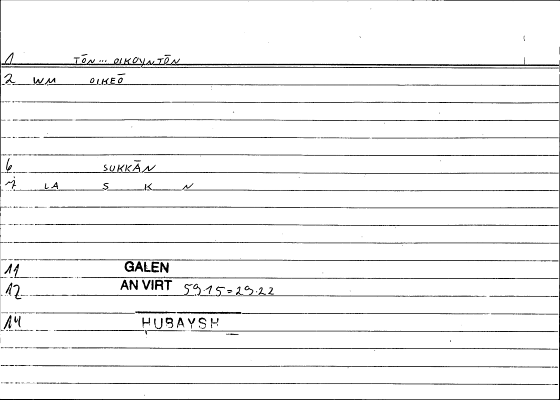 1 TŌN... OIKOYNTŌN
2 WM OIKEŌ
6 SUKKĀN
7 LA S K N
11 GALEN
12 AN VIRT 59.15=29.22
14 HUBAYSH